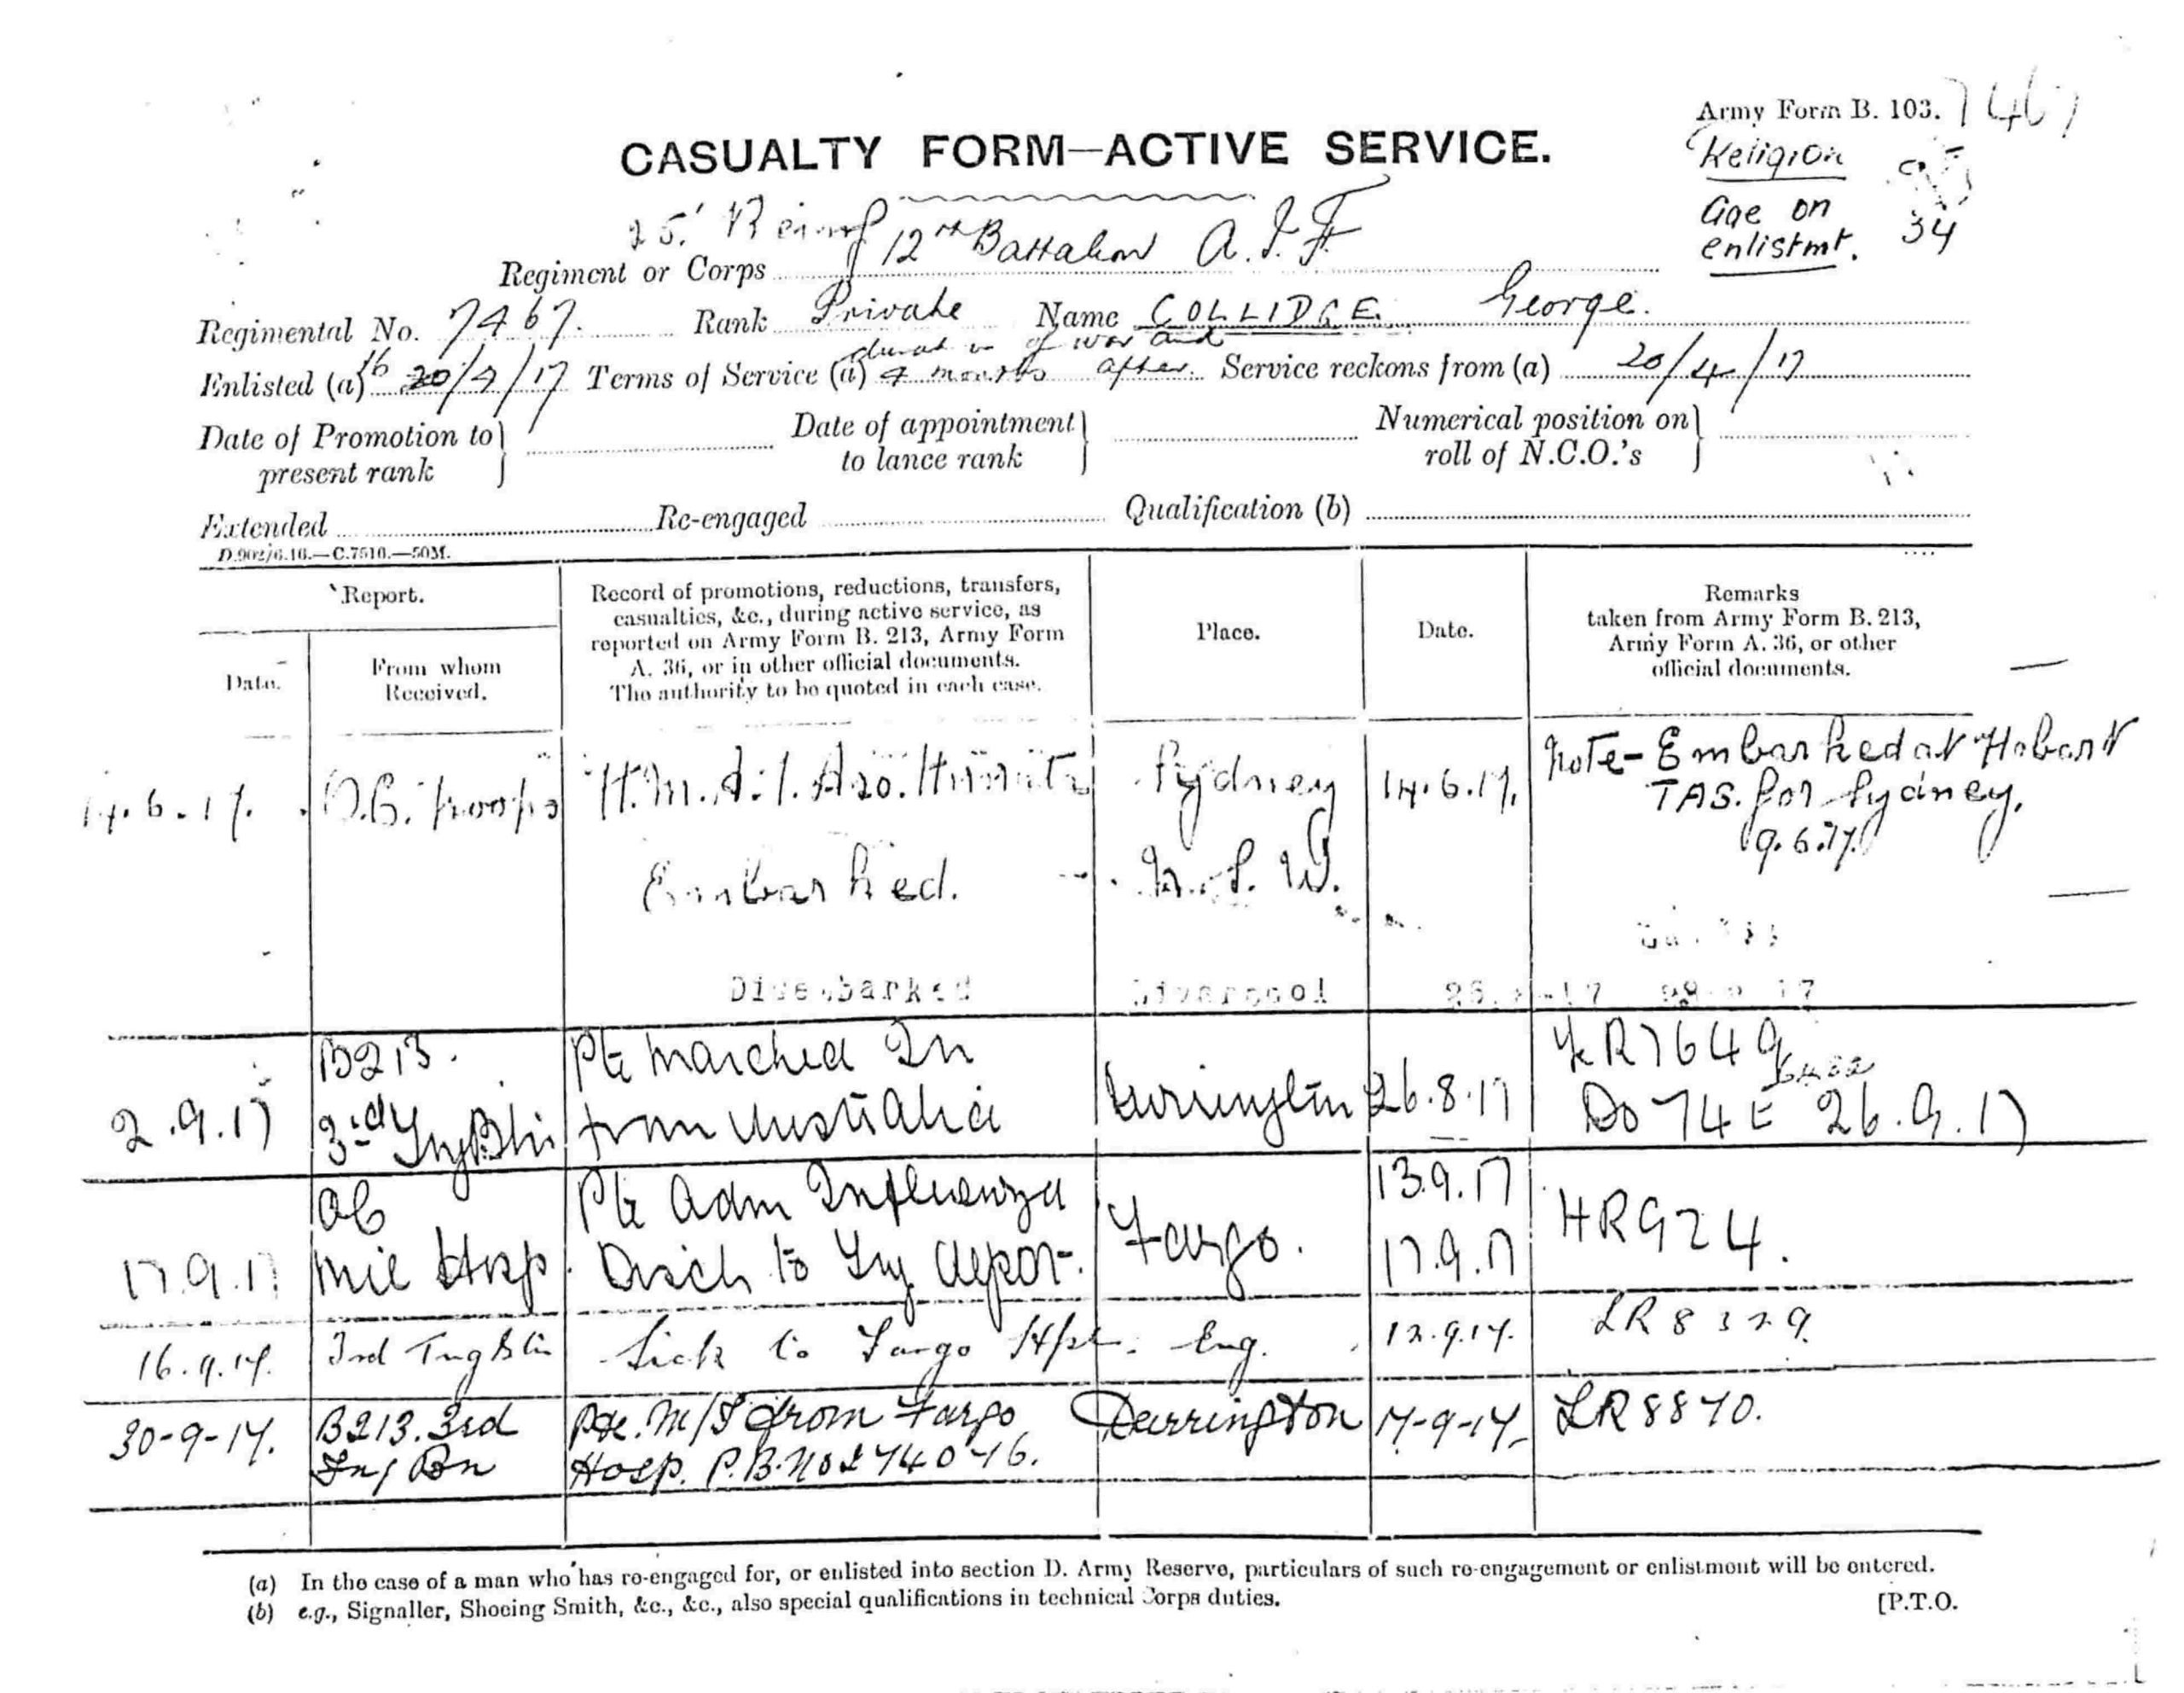 Army Form B. 103. 7467
CASUALTY FORM—ACTIVE SERVICE.
Religion
Age on
enlistmt. 34
25' Reinf 12th Battalion A.I.F.
Regiment or Corps
Regimental No. 7467. Rank Private Name COLLIDGE George.
duration of war and
Enlisted (a) 16 20/4/17 Terms of Service (a) 4 months after. Service reckons from (a) 20/4/17
Date of Promotion to present rank } Date of appointment to lance rank } Numerical position on roll of N.C.O.'s }
Extended Re-engaged Qualification (b)
D.902/6.16.—C.7510.—50M.
Report.
Date.
From whom
Received.
Record of promotions, reductions, transfers,
casualties, &c., during active service, as
reported on Army Form B. 213, Army Form
A. 36, or in other official documents.
The authority to be quoted in each case.
Place.
Date.
Remarks
taken from Army Form B. 213,
Army Form A. 36, or other
official documents.
14.6.17. O.C. Troops H.M.A.T. A20. Sydney 14.6.17. Note - Embarked at Hobart
TAS. for Sydney.
9.6.17.
Embarked. N.S.W.
Disembarked Liverpool
2.9.17 B213. Pte Marched In Durrington 26.8.17 LR7649
3rd Trg Btn from Australia DO 74 E 26.9.17
17.9.17 OC Pte Adm Influenza Fargo. 13.9.17 HR924.
Mil Hosp. Disch to Trg depot. 17.9.17
16.9.17. 3rd Trng Btn Sick to Fargo Hpl. Eng. 12.9.17. LR 8329.
30-9-17. B213. 3rd Pte. M/I from Fargo Durrington 17-9-17. LR8870.
Trng Bn Hosp. P.B. No 274076.
(a) In the case of a man who has re-engaged for, or enlisted into section D. Army Reserve, particulars of such re-engagement or enlistment will be entered.
(b) e.g., Signaller, Shoeing Smith, &c., &c., also special qualifications in technical Corps duties.
[P.T.O.